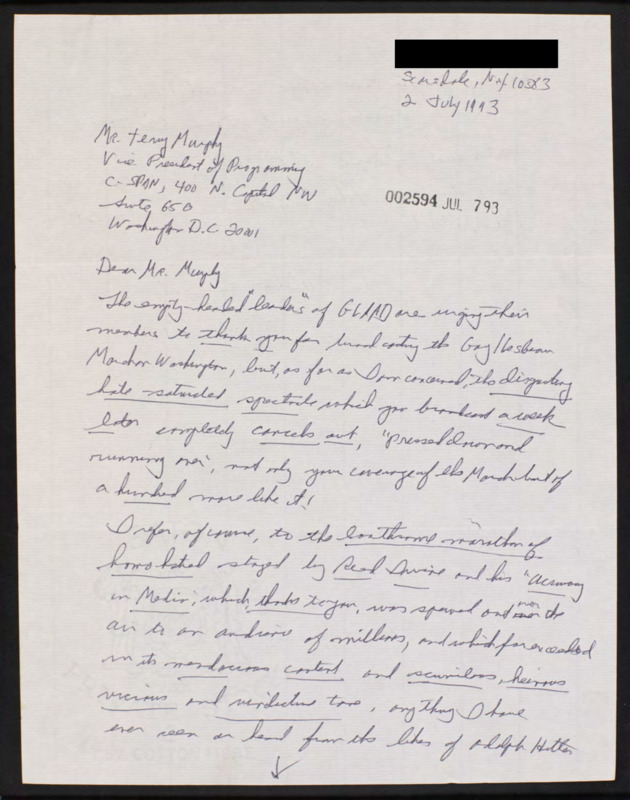 Scarsdale, N.Y. 10583
2 July 1993
Mr. Terry Murphy
Vice President of Programming
C-SPAN, 400 N. Capitol NW
Suite 650
Washington D.C. 20001
002594 JUL 7 93
Dear Mr. Murphy
The empty-headed "leaders" of GLAAD are urging their
members to thank you for broadcasting the Gay/Lesbian
March on Washington, but, as far as I am concerned, the disgusting
hate saturated spectacle which you broadcast a week
later completely cancels out, "pressed down and
running over", not only your coverage of the March but of
a hundred more like it!
I refer, of course, to the loathsome marathon of
homohatred staged by Reed Irvine and his "Accuracy
in Media", which, thanks to you, was spewed out over the
air to an audience of millions, and which far exceeded
in its mendacious content and scurrilous, heinous
vicious and vindictive tone, anything I have
ever seen or heard from the likes of Adolph Hitler